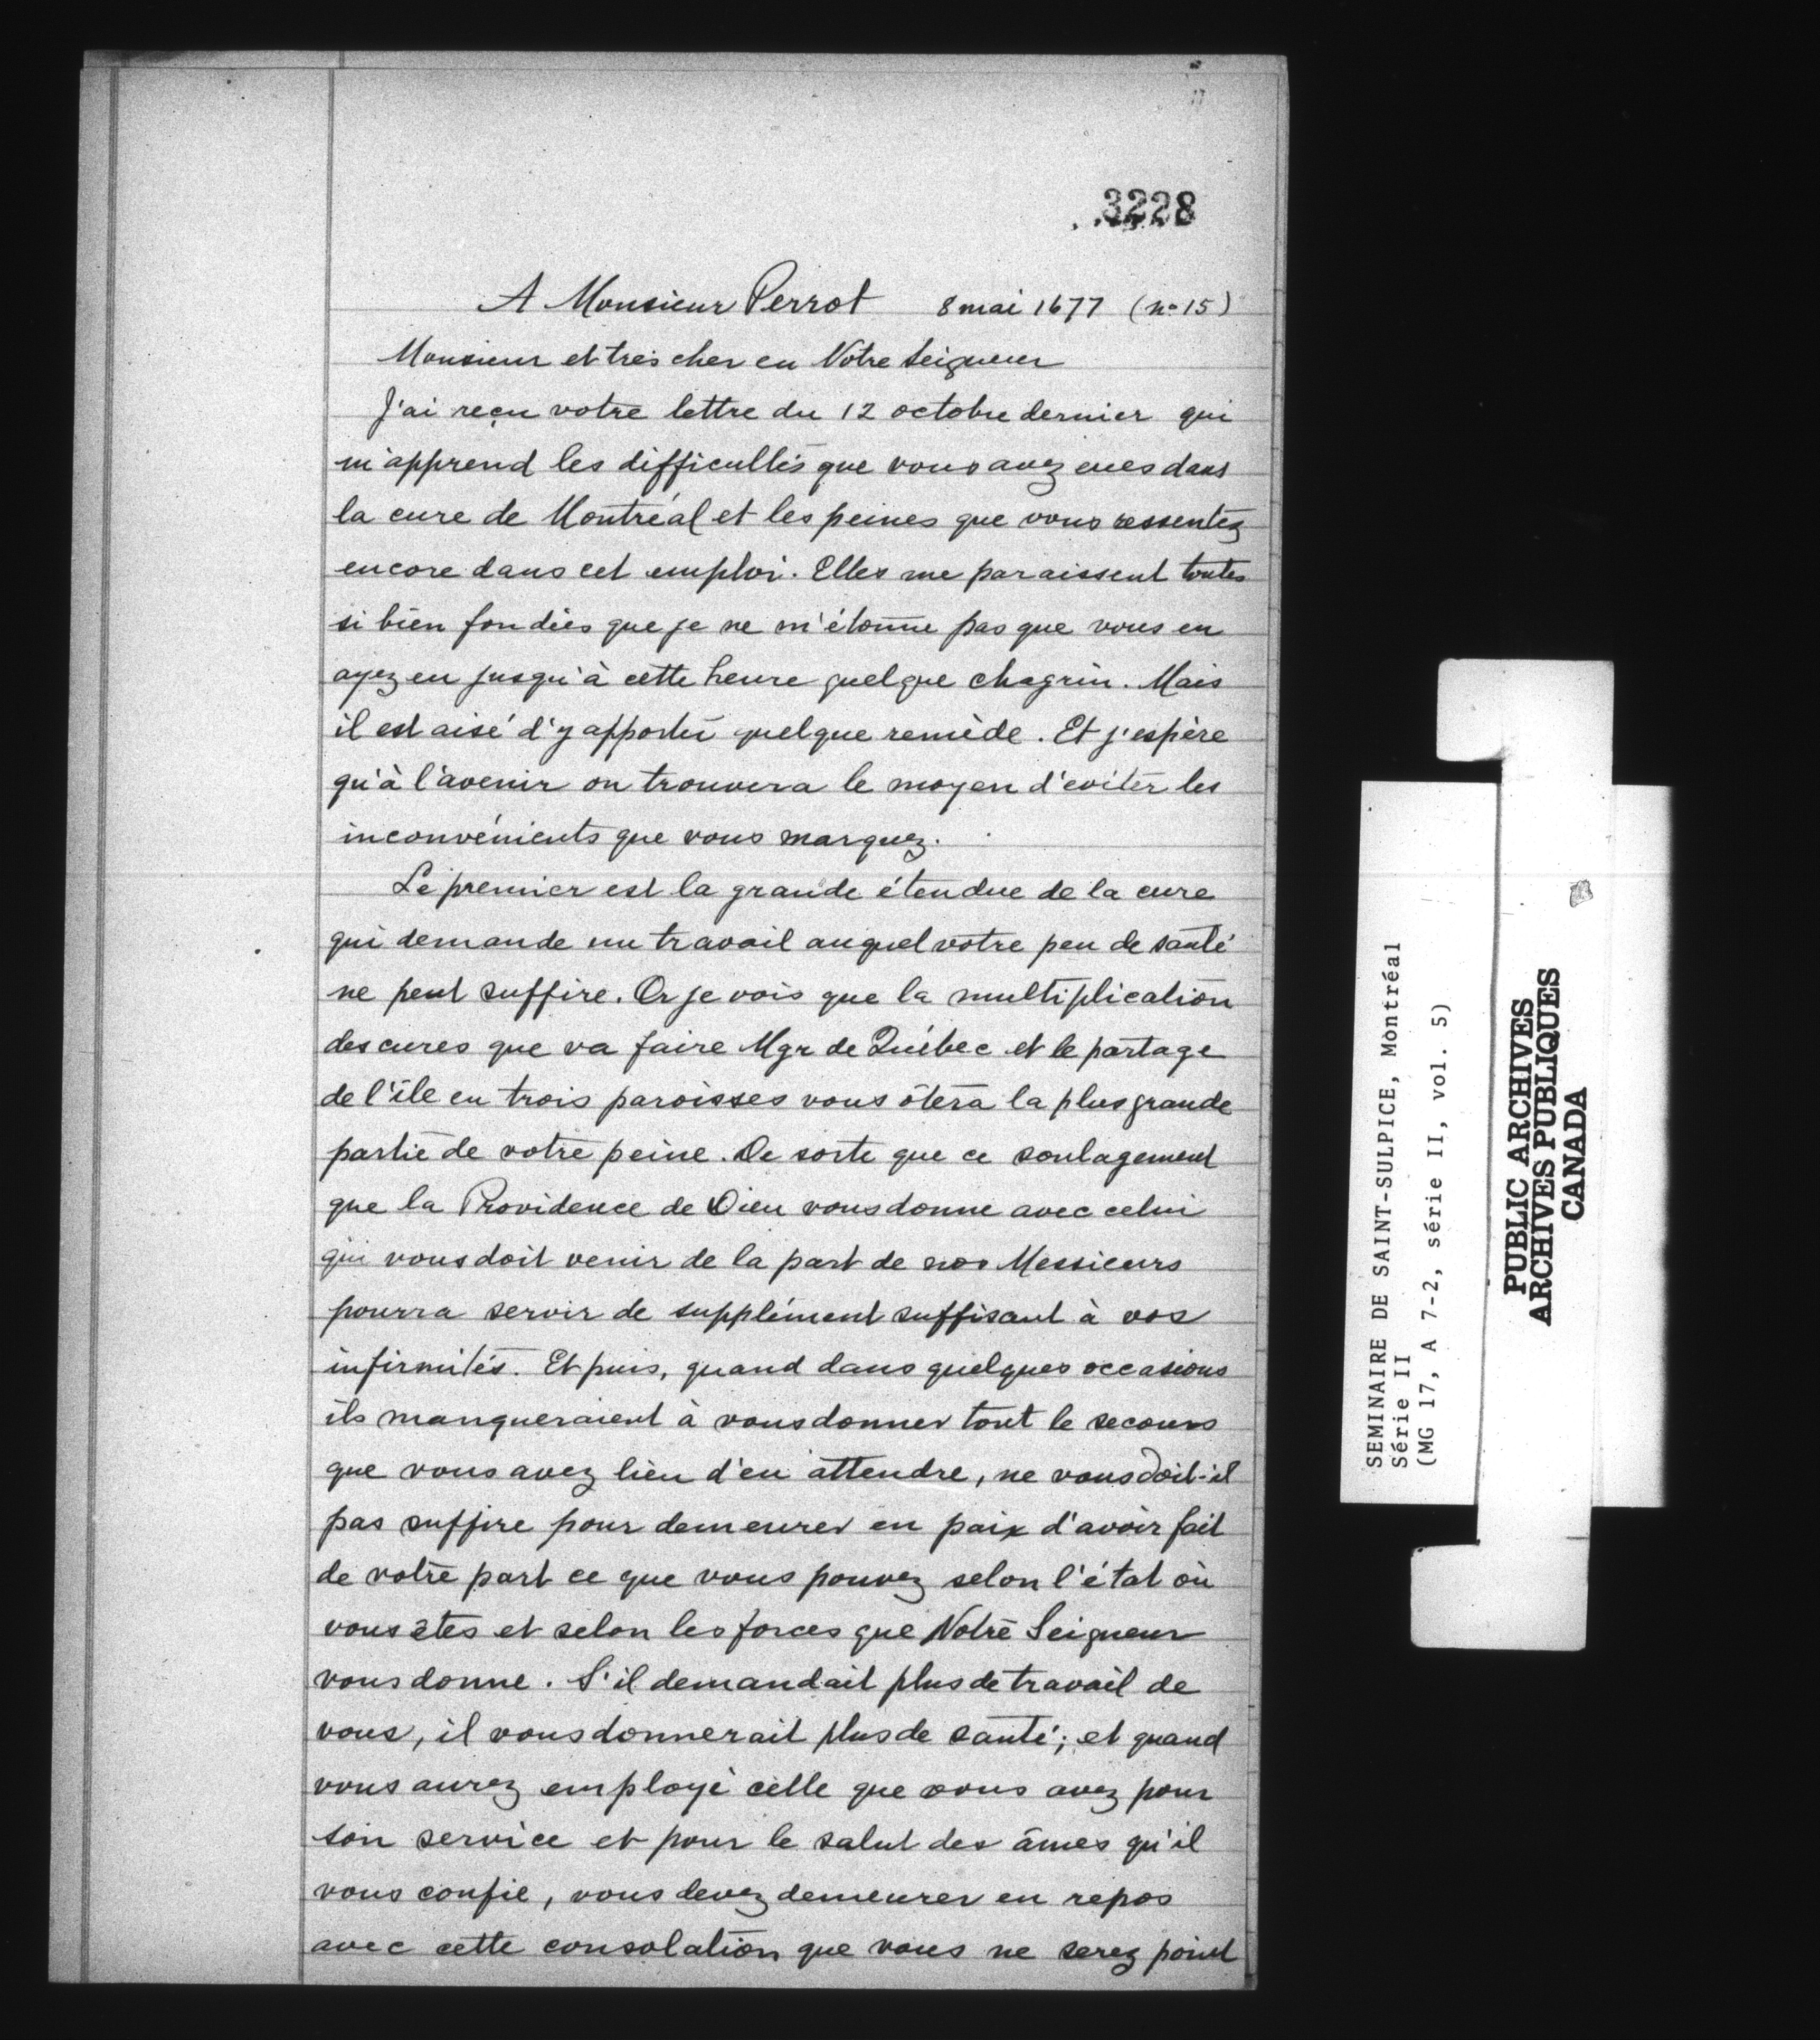 3228
A Monsieur Perrot 8 mai 1677 (no 15)
Monsieur et très cher en Notre Seigneur
J'ai reçu votre lettre du 12 octobre dernier qui
m'apprend les difficultés que vous avez eues dans
la cure de Montréal et les peines que vous ressentez
encore dans cet emploi. Elles me paraissent toutes
si bien fondées que je ne m'étonne pas que vous en
ayez eu jusqu'à cette heure quelque chagrin. Mais
il est aisé d'y apporter quelque remède. Et j'espère
qu'à l'avenir on trouvera le moyen d'eviter les
inconvénients que vous marquez.
Le premier est la grande étendue de la cure
qui demande un travail auquel votre peu de santé
ne peut suffire. Or je vois que la multiplication
des cures que va faire Mgr de Québec et le partage
de l'île en trois paroisses vous ôtera la plus grande
partie de votre peine. De sorte que ce soulagement
que la Providence de Dieu vous donne avec celui
qui vous doit venir de la part de nos Messieurs
pourra servir de supplément suffisant à vos
infirmités. Et puis, quand dans quelques occasions
ils manqueraient à vous donner tout le secours
que vous avez lieu d'en attendre, ne vous doit-il
pas suffire pour demeurer en paix d'avoir fait
de votre part ce que vous pouvez selon l'état où
vous êtes et selon les forces que Notre Seigneur
vous donne. S'il demandait plus de travail de
vous, il vous donnerait plus de santé; et quand
vous aurez employé celle que vous avez pour
son service et pour le salut des âmes qu'il
vous confie, vous devez demeurer en repos
avec cette consolation que vous ne serez point
SEMINAIRE DE SAINT-SULPICE, Montréal
Série II
(MG 17, A 7-2, série II, vol. 5)
PUBLIC ARCHIVES
ARCHIVES PUBLIQUES
CANADA